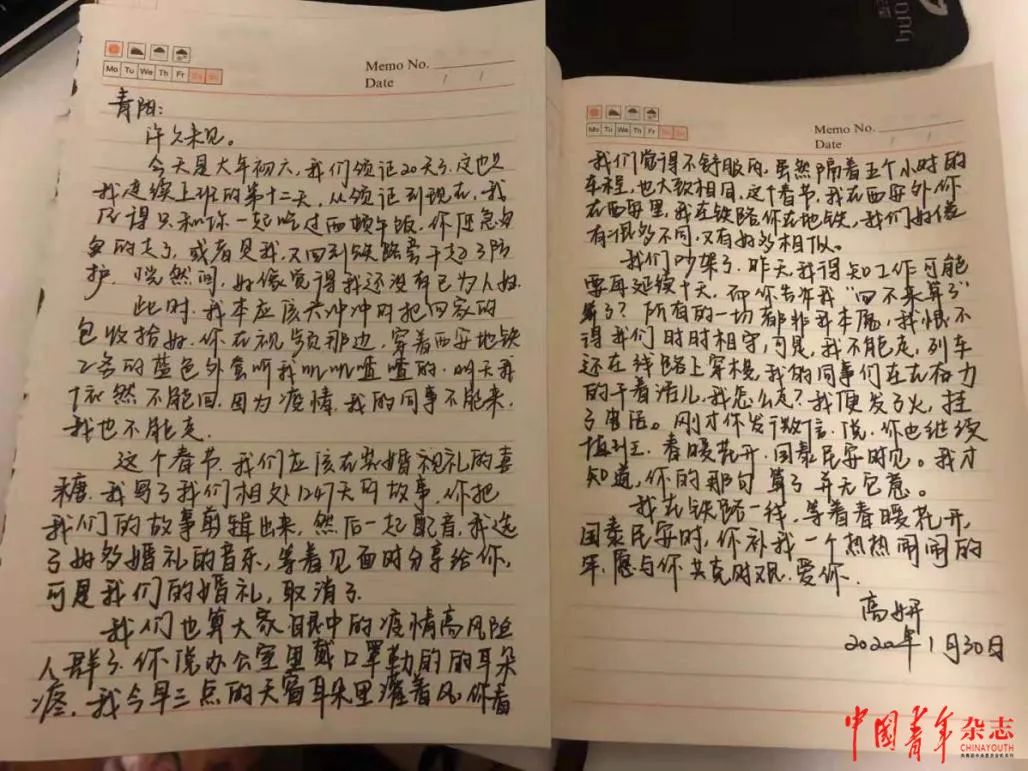 Mo Tu We Th Fr Sa Su
Memo No.
Date / /
青阳:
许久未见。
今天是大年初六,我们领证20天了,这也是
我连续上班的第十二天,从领证到现在,我
只和你一起吃过两顿午饭,你还急匆
匆的走了,或者是我,又回到铁路
护。恍然间,好像觉得我还没有已为人妇。
此时,我本应该兴冲冲的把回家的
包收拾好,你在视频那边,穿着西安地铁
2务的蓝色外套听我叽叽喳喳的,明天我
依然不能回,因为疫情,我的同事不能来,
我也不能走.
这个春节,我们应该在忙婚礼的喜
糖,我写了我们相处1247天的故事,你把
我们的故事剪辑出来,然后一起配音,我选
了好多婚礼的音乐,等着见面时分享给你,
可是我们的婚礼,取消了.
我们也算大家眼中的疫情高风险
人群了,你说办公室里戴口罩勒的的耳朵
疼,我今早三点的天窗耳朵里灌着风,你看
Mo Tu We Th Fr Sa Su
Memo No.
Date / /
我们觉得不舒服的,虽然隔着五个小时的
车程,也大致相同,这个春节,我在西安外,你
在西安里,我在铁路你在地铁,我们好像
有很多不同,又有好多相似。
我们吵架了,昨天,我得知工作可能
要再延续十天,而你告诉我“回不来算了”
算了?所有的一切都非我本愿,我恨不
得我们时时相守,可是,我不能走,列车
还在线路上穿梭,我的同事们在在奋力
的干着活儿,我怎么走?我便发了火,挂
了电话。刚才你发了微信,说,你也继续
值班,春暖花开,国泰民安时见。我才
知道,你的那句 算了 并无它意。
我在铁路一线,等着春暖花开,
国泰民安时,你补我一个热热闹闹的
年,愿与你共克时艰.爱你.
高妍
2020年1月30日
中国青年杂志
CHINAYOUTH